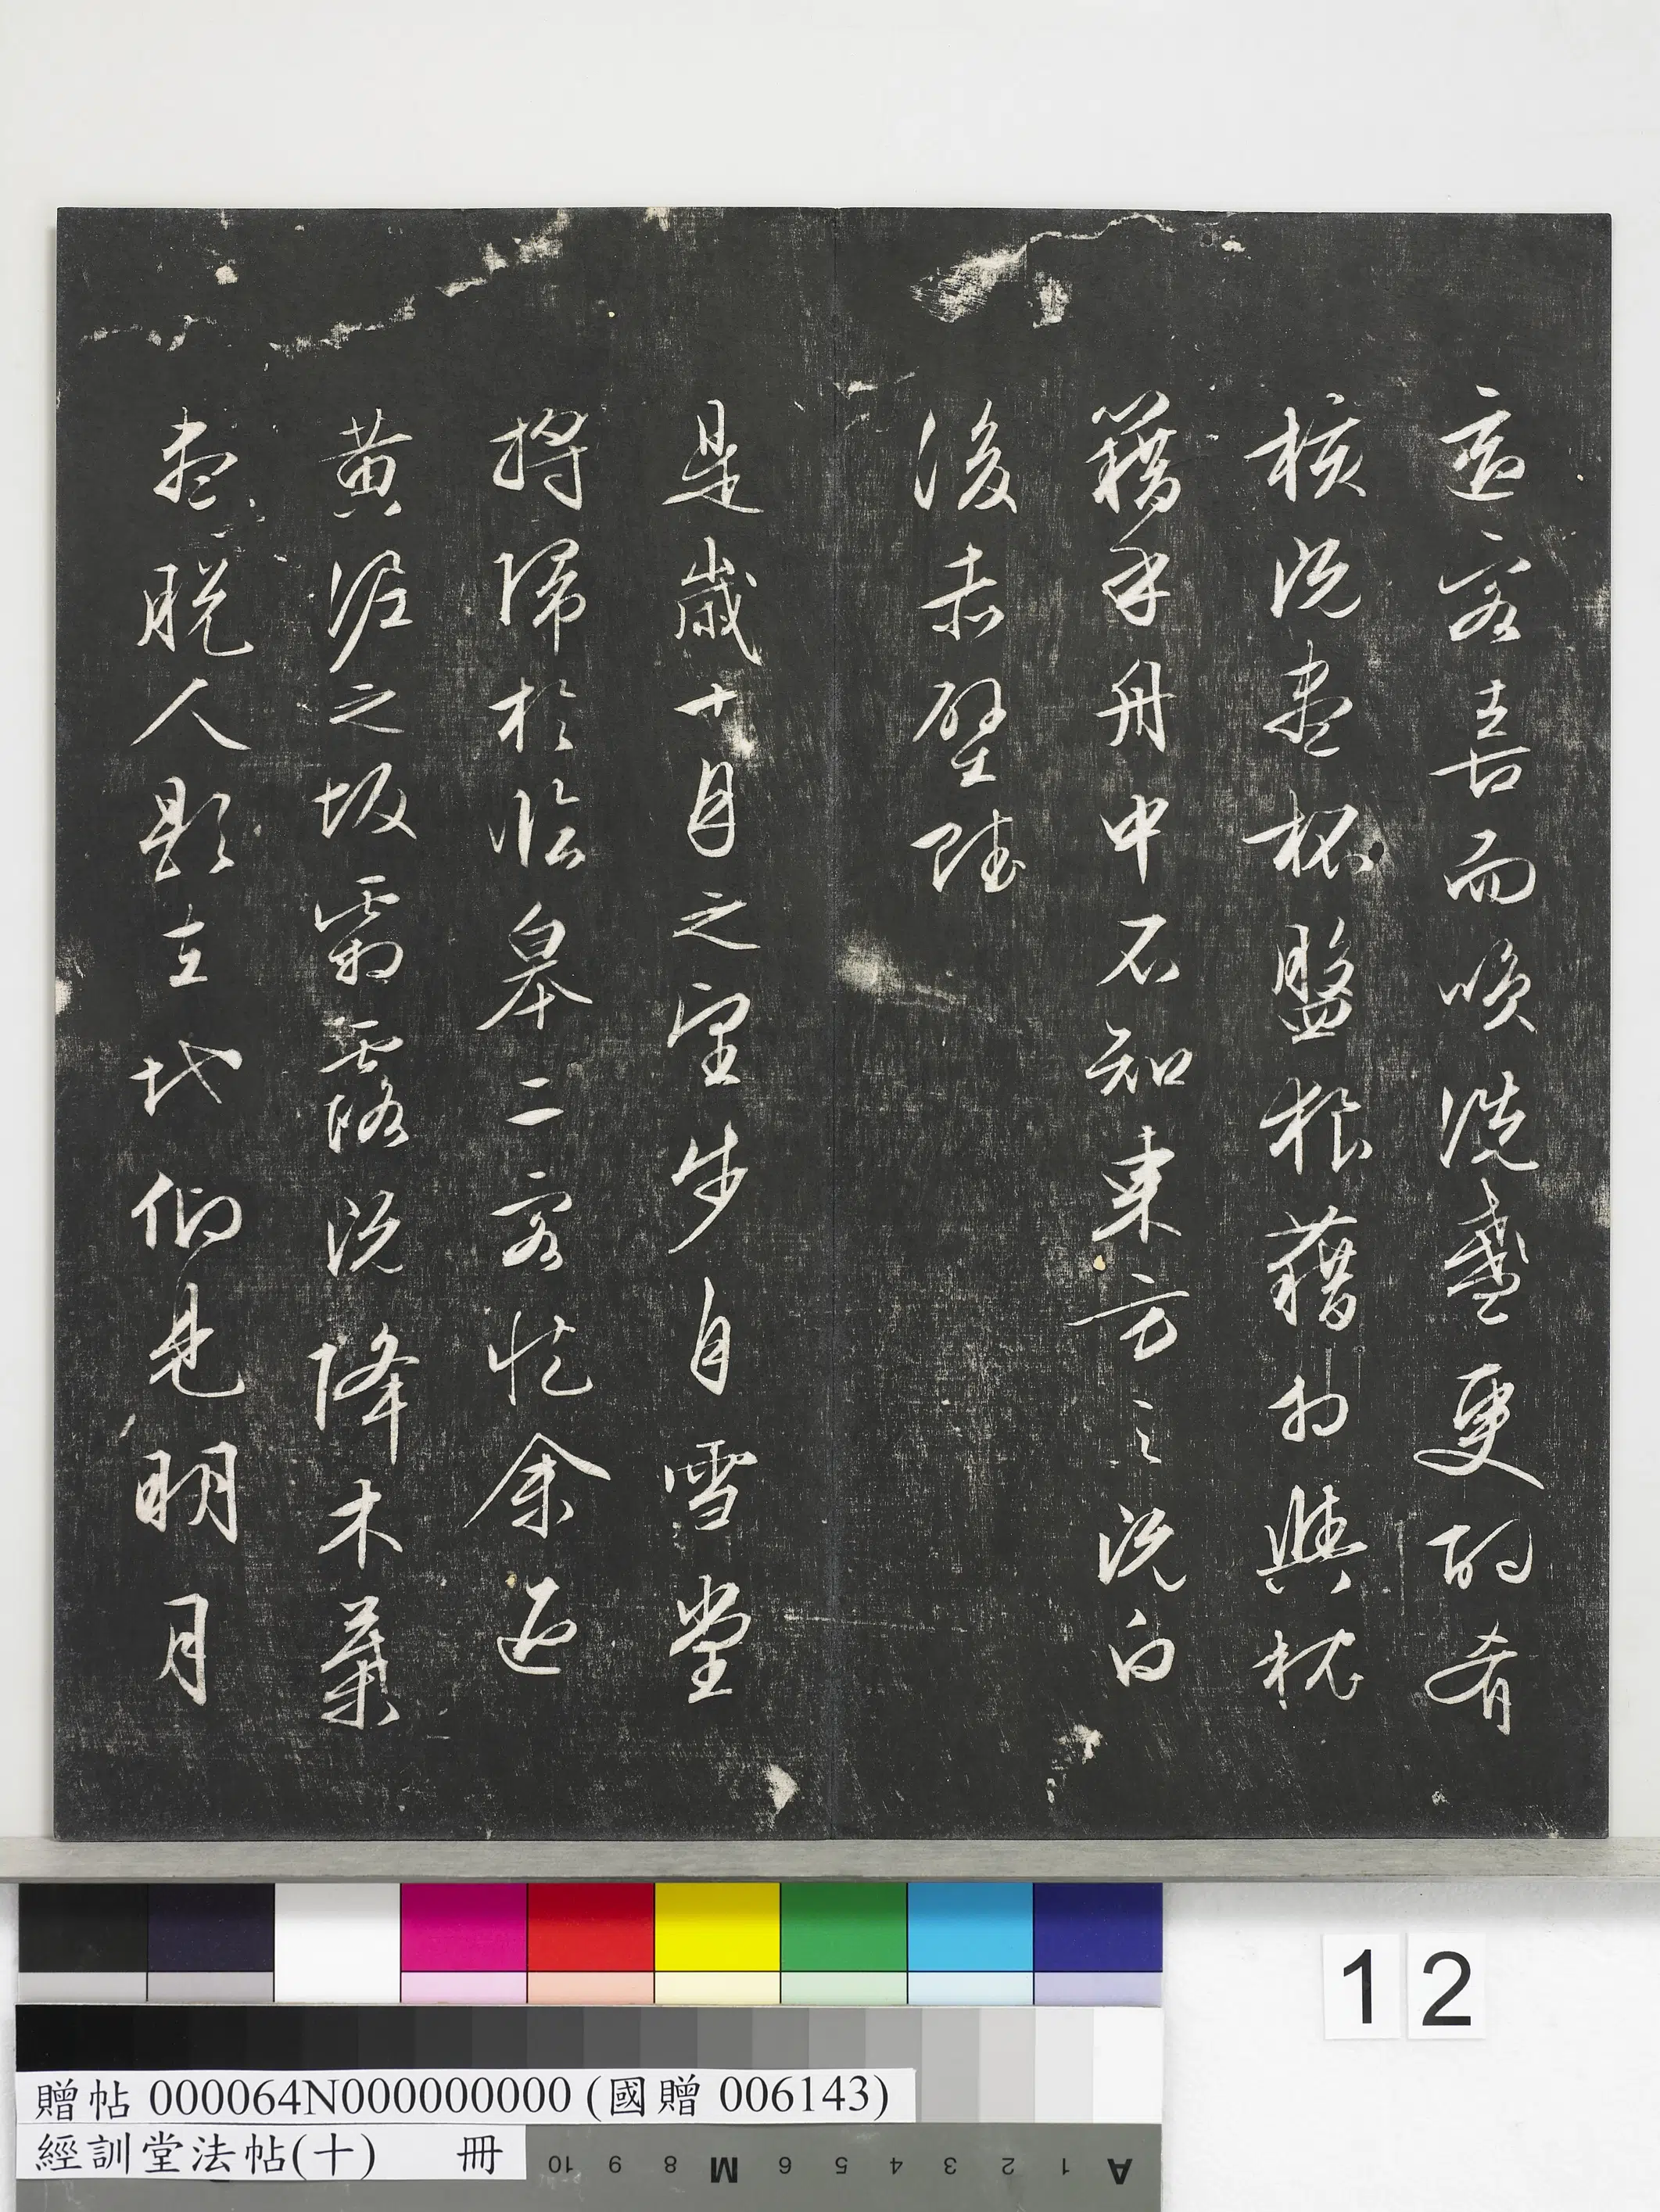 適客喜而唉洗盞更酌肴
核既盡杯盤狼藉相與枕
藉乎舟中不知東方之既白
後赤壁賦
是歲十月之望步自雪堂
將歸於臨皋二客從余過
黃泥之坂霜露既降木葉
盡脫人影在地仰見明月
12
贈帖 000064N000000000 (國贈 006143)
經訓堂法帖(十) 冊
10 9 8 M 6 5 4 3 2 1 A